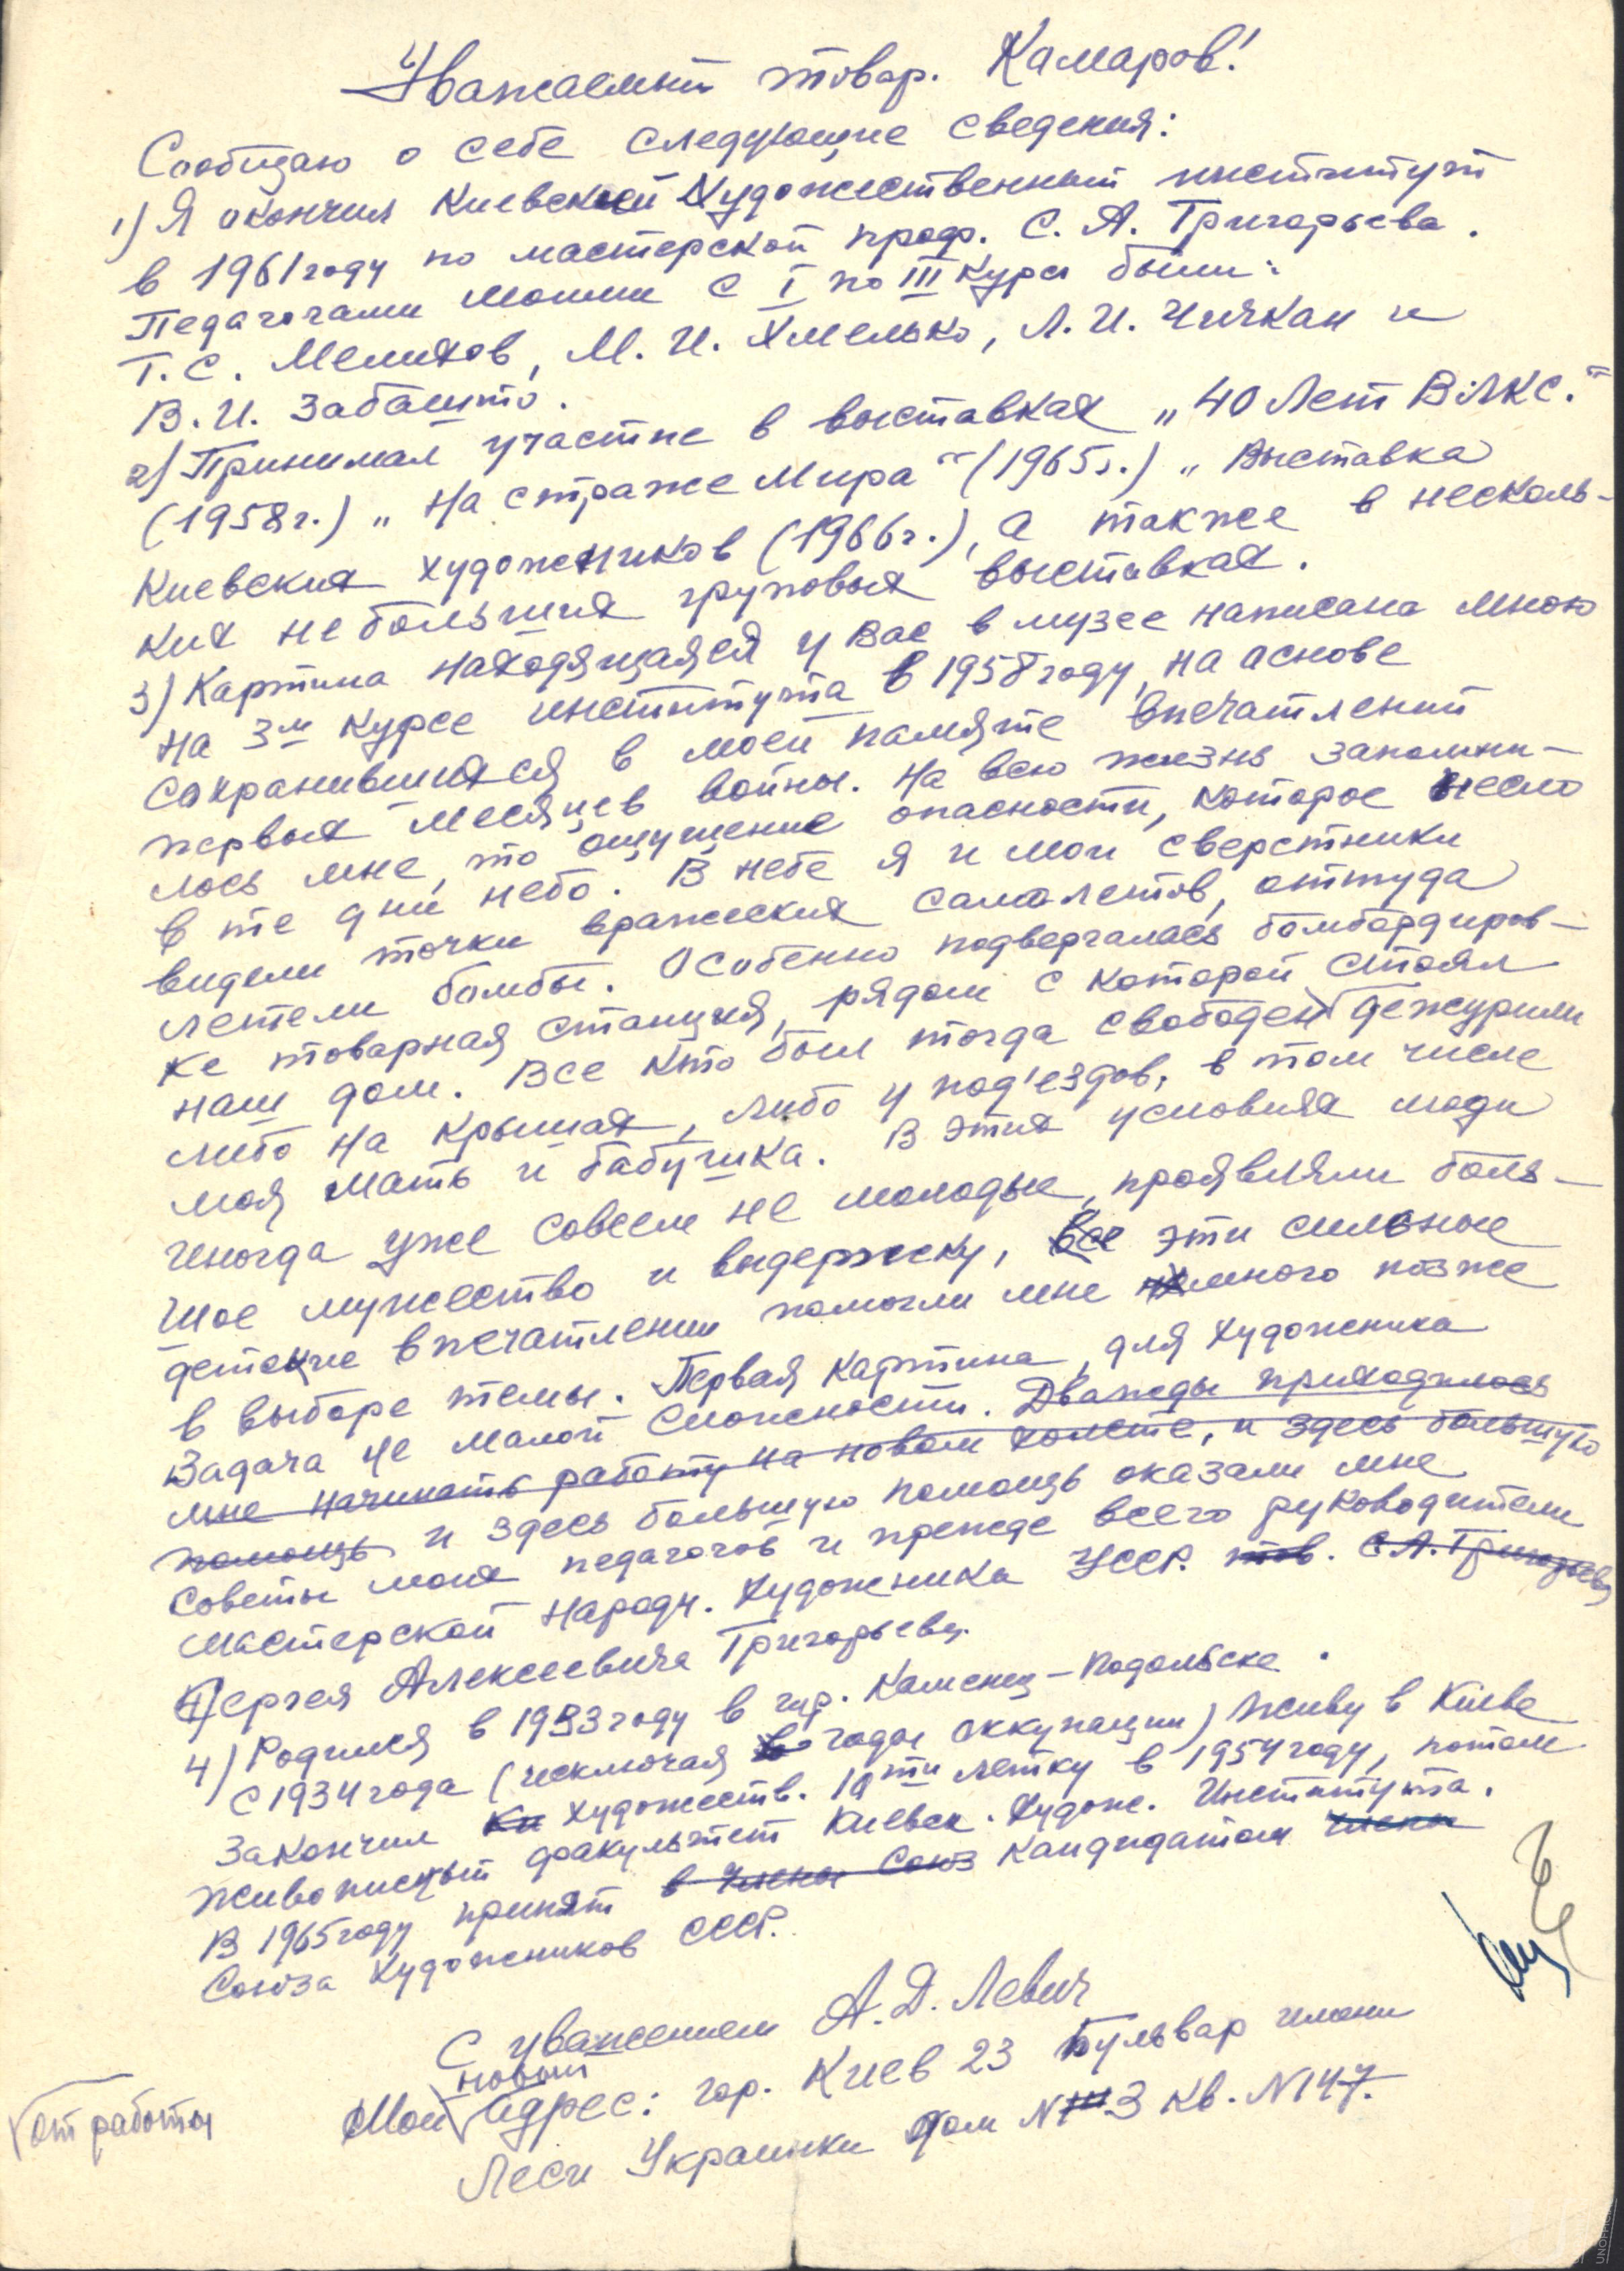 Уважаемый товар. Камаров!
Сообщаю о себе следующие сведения:
1) Я окончил Киевский Художественный институт
в 1961 году по мастерской проф. С. А. Григорьева.
Педагогами моими с I по III курс были:
Т. С. Мелихов, М. И. Хмелько, Л. И. Чичкан и
В. И. Забашто.
2) Принимал участие в выставках „40 лет ВЛКС."
(1958г.) „На страже Мира" (1965г.) „Выставка
Киевских художников (1966г.), а также в несколь-
ких небольших груповых выставках.
3) Картина находящаяся у Вас в музее написана мною
на 3м курсе института в 1958 году, на основе
сохранившихся в моей памяте впечатлений
первых месяцев войны. На всю жизнь запомни-
лось мне, то ощущение опасности, которое несло
в те дни небо. В небе я и мои сверстники
видели точки вражеских самолетов, оттуда
летели бомбы. Особенно подвергалась бомбардиров-
ке товарная станция, рядом с которой стоял
наш дом. Все кто был тогда свободен дежурили
либо на крышах, либо у под'ездов, в том числе
моя мать и бабушка. В этих условиях люди
иногда уже совсем не молодые, проявляли боль-
шое мужество и выдержку, все эти сильные
детские впечатления помогли мне немного позже
в выборе темы. Первая картина, для художника
Задача не малой сложности. Дважды приходилось
мне начинать работу на новом холсте, и здесь большую
помощь и здесь большую помощь оказали мне
советы моих педагогов и прежде всего руководителя
мастерской Народн. Художника УССР. тов. С. А. Григорьева
Сергея Алексеевича Григорьева.
4) Родился в 1933 году в гор. Каменец-Подольске.
С 1934 года (исключая годы оккупации) Живу в Киеве
Закончил Ки художеств. 10ти летку в 1954 году, потом
живописный факультет Киевск. Худож. Института.
В 1965 году принят в члены Союз кандидатом члена
Союза Художников СССР.
С уважением А. Д. Левич
новый
Мой адрес: гор. Киев 23 Бульвар имени
Леси Украинки дом N 3 кв. N 147.
от работы